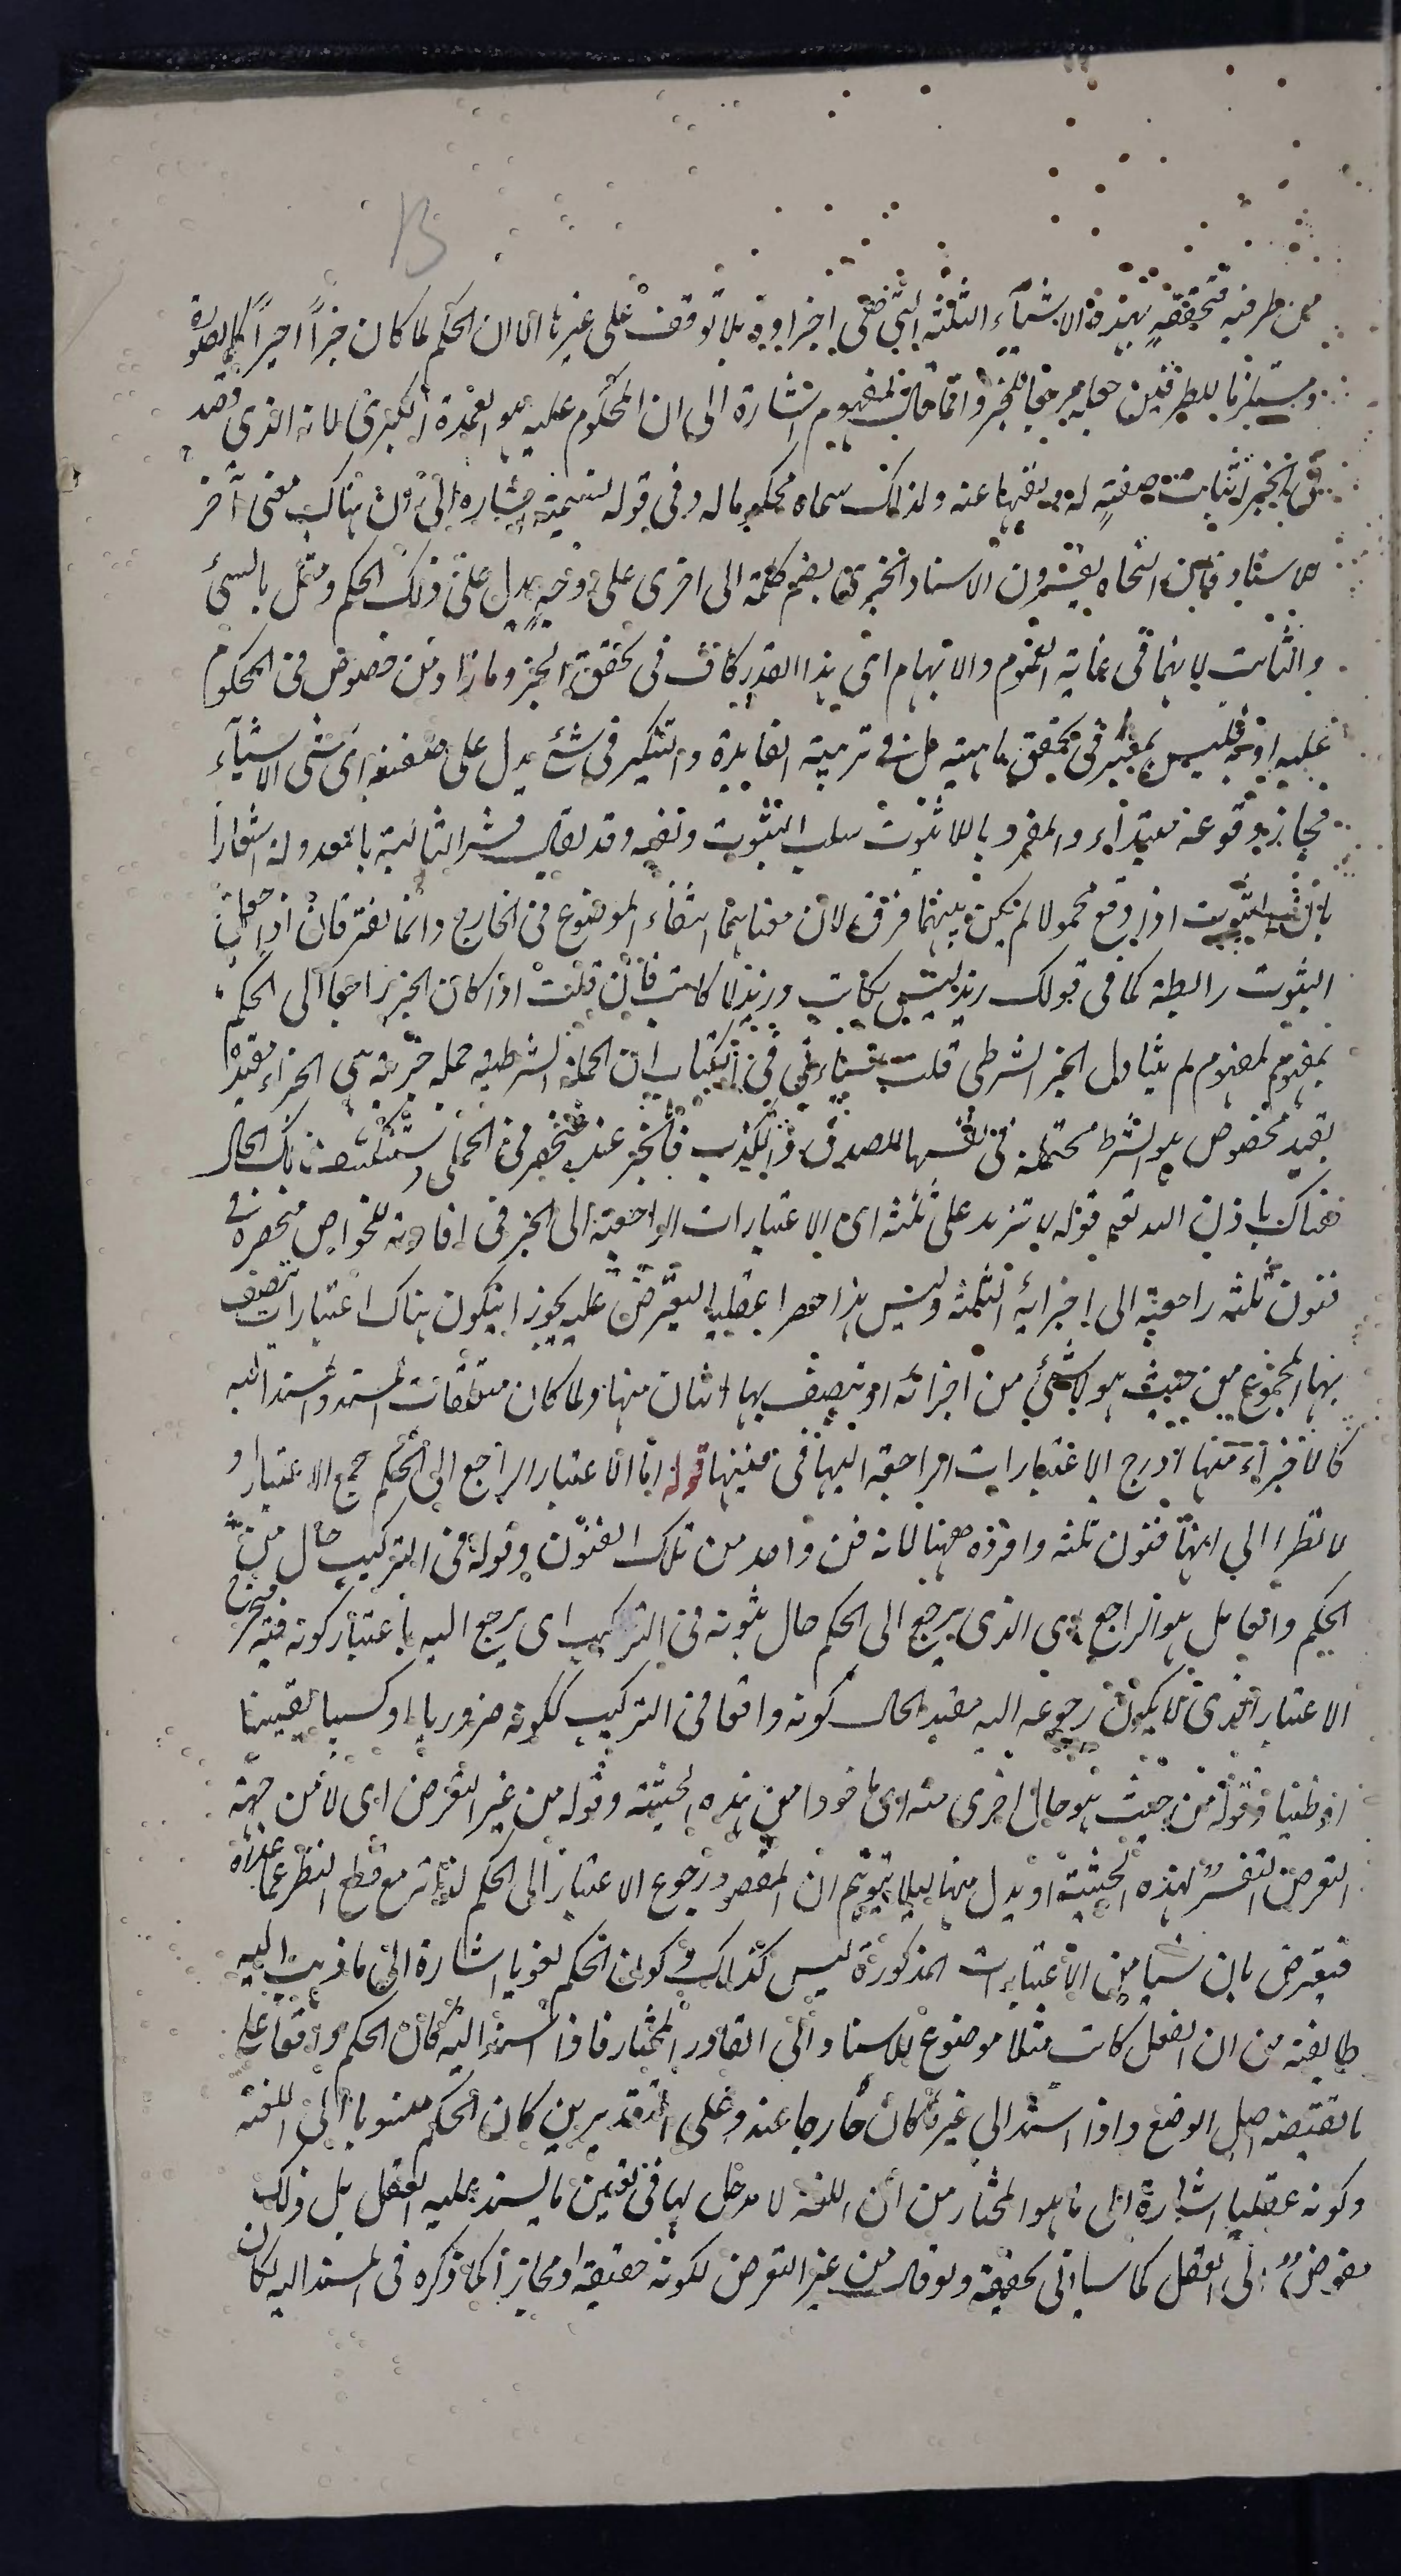 من طرفيه فتحققه بهذه الاشياء الثلثة التى هى اجزاؤه بلا توقف على غيرها الا ان الحكم لما كان جزأ اخيرا كالصورة
ومستلزما للطرفين جعله مرجعا للخبر وانما قال لمفهوم اشارة الى ان المحكوم عليه هو العمدة الكبرى لانه الذى قصد
فى الخبر اثبات صفة له او نفيها عنه ولذلك سماه محكوما له وفى قوله نسميه اشارة الى ان هناك معنى آخر
للاسناد فان النحاة يفسرون الاسناد الخبرى بضم كلمة الى اخرى على وجه يدل على ذلك الحكم ومثل بالشئ
والثابت لانهما فى غاية العموم والابهام اى هذا القدر كاف فى تحقق الخبر وما زاد من خصوص فى المحكوم
عليه او به فليس بمعتبر فى تحقق ماهيته بل فى تربية الفايدة والتنكير فى شئ يدل على بعضه اى شئ الاشياء
فجاز وقوعه مبتداء والمفرد باللاثبوت سلب الثبوت ونفيه وقد يقال فسر الثانية بالمعدولة اشعارا
بان الثبوت اذا وقع محمولا لم يكن بينهما فرق لان معناهما انتفاء الموضوع فى الخارج وانما يفترقان اذا جعل
الثبوت رابطة كما فى قولك زيد ليس بكاتب وزيد لا كاتب فان قلت اذا كان الخبر راجعا الى الحكم
بمفهوم لمفهوم لم يتناول الخبر الشرطى قلت سياتى فى الكتاب ان الجملة الشرطية جملة خبرية هى الجزاء مقيدة
بقيد مخصوص هو الشرط محتملة فى نفسها للصدق والكذب فالخبر عنده منحصر فى الحملى وستنكشف لك الحال
هناك باذن الله تعالى قوله لا تزيد على ثلثة اى الاعتبارات الراجعة الى الخبر فى افادته للخواص منحصرة فى
فنون ثلثة راجعة الى اجزائه الثلثة وليس هذا حصرا عقليا ليعترض عليه يجوز ان يكون هناك اعتبارات تتصف
بها المجموع من حيث هو لا شئ من اجزائه او يتصف بها اثنان منها ولما كان متعلقات المسند والمسند اليه
كالاجزاء منها ادرج الاعتبارات الراجعة اليها فى فنيها قوله اما الاعتبار الراجع الى الحكم جمع الاعتبار او
لا نظرا الى انها فنون ثلثة وافرده ههنا لانه فن واحد من تلك الفنون وقوله فى التركيب حال من
الحكم والعامل هو الراجع اى الذى يرجع الى الحكم حال ثبوته فى التركيب اى يرجع اليه باعتبار كونه فيه فيخرج
الاعتبار الذى لا يكون رجوعه اليه مقيد الحال كونه واقعا فى التركيب ككونه ضروريا او كسبيا يقينيا
او ظنيا وقوله من حيث هو حال اخرى منه اى ماخوذا من هذه الحيثية وقوله من غير التعرض اى لا من جهة
التعرض تفسير لهذه الحيثية او بدل منها ليلا يتوهم ان المقصود رجوع الاعتبار الى الحكم لذاته مع قطع النظر عما عداه
فيعترض بان شيا من الاعتبارات المذكورة ليس كذلك وكون الحكم لغويا اشارة الى ما ذهب اليه
طايفة من ان الفعل كانبت مثلا موضوع للاسناد الى القادر المختار فاذا اسند اليه كان الحكم واقعا على
ما يقتضيه اصل الوضع واذا اسند الى غيره كان خارجا عنه وعلى التقديرين كان الحكم منسوبا الى اللغة
وكونه عقليا اشارة الى ما هو المختار من ان اللغة لا مدخل لها فى تعيين ما يسند عليه الفعل بل ذلك
مفوض الى العقل كما سياتى تحقيقه ولو قال من غير التعرض لكونه حقيقة او مجازا كما ذكره فى المسند اليه لكان